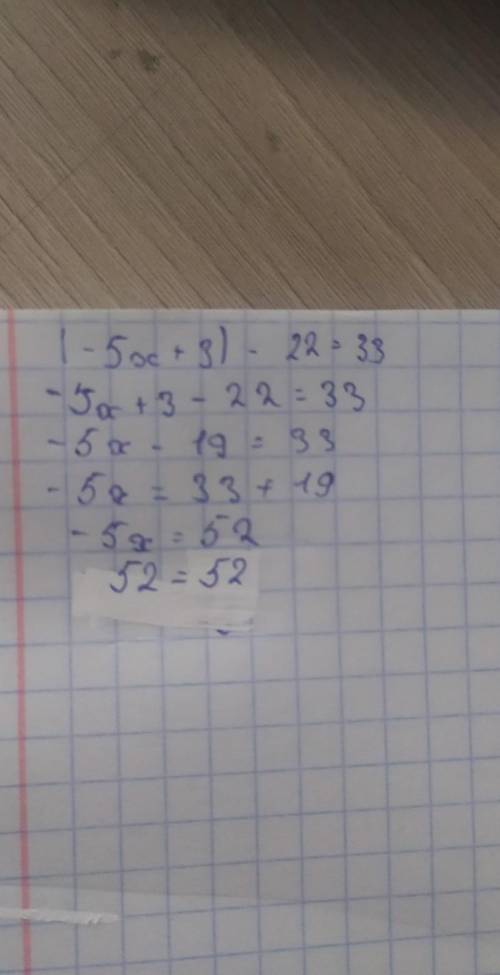 |-5x+3|- 22=33
-5x+3-22=33
-5x-19=33
-5x=33+19
-5x=52
52=52